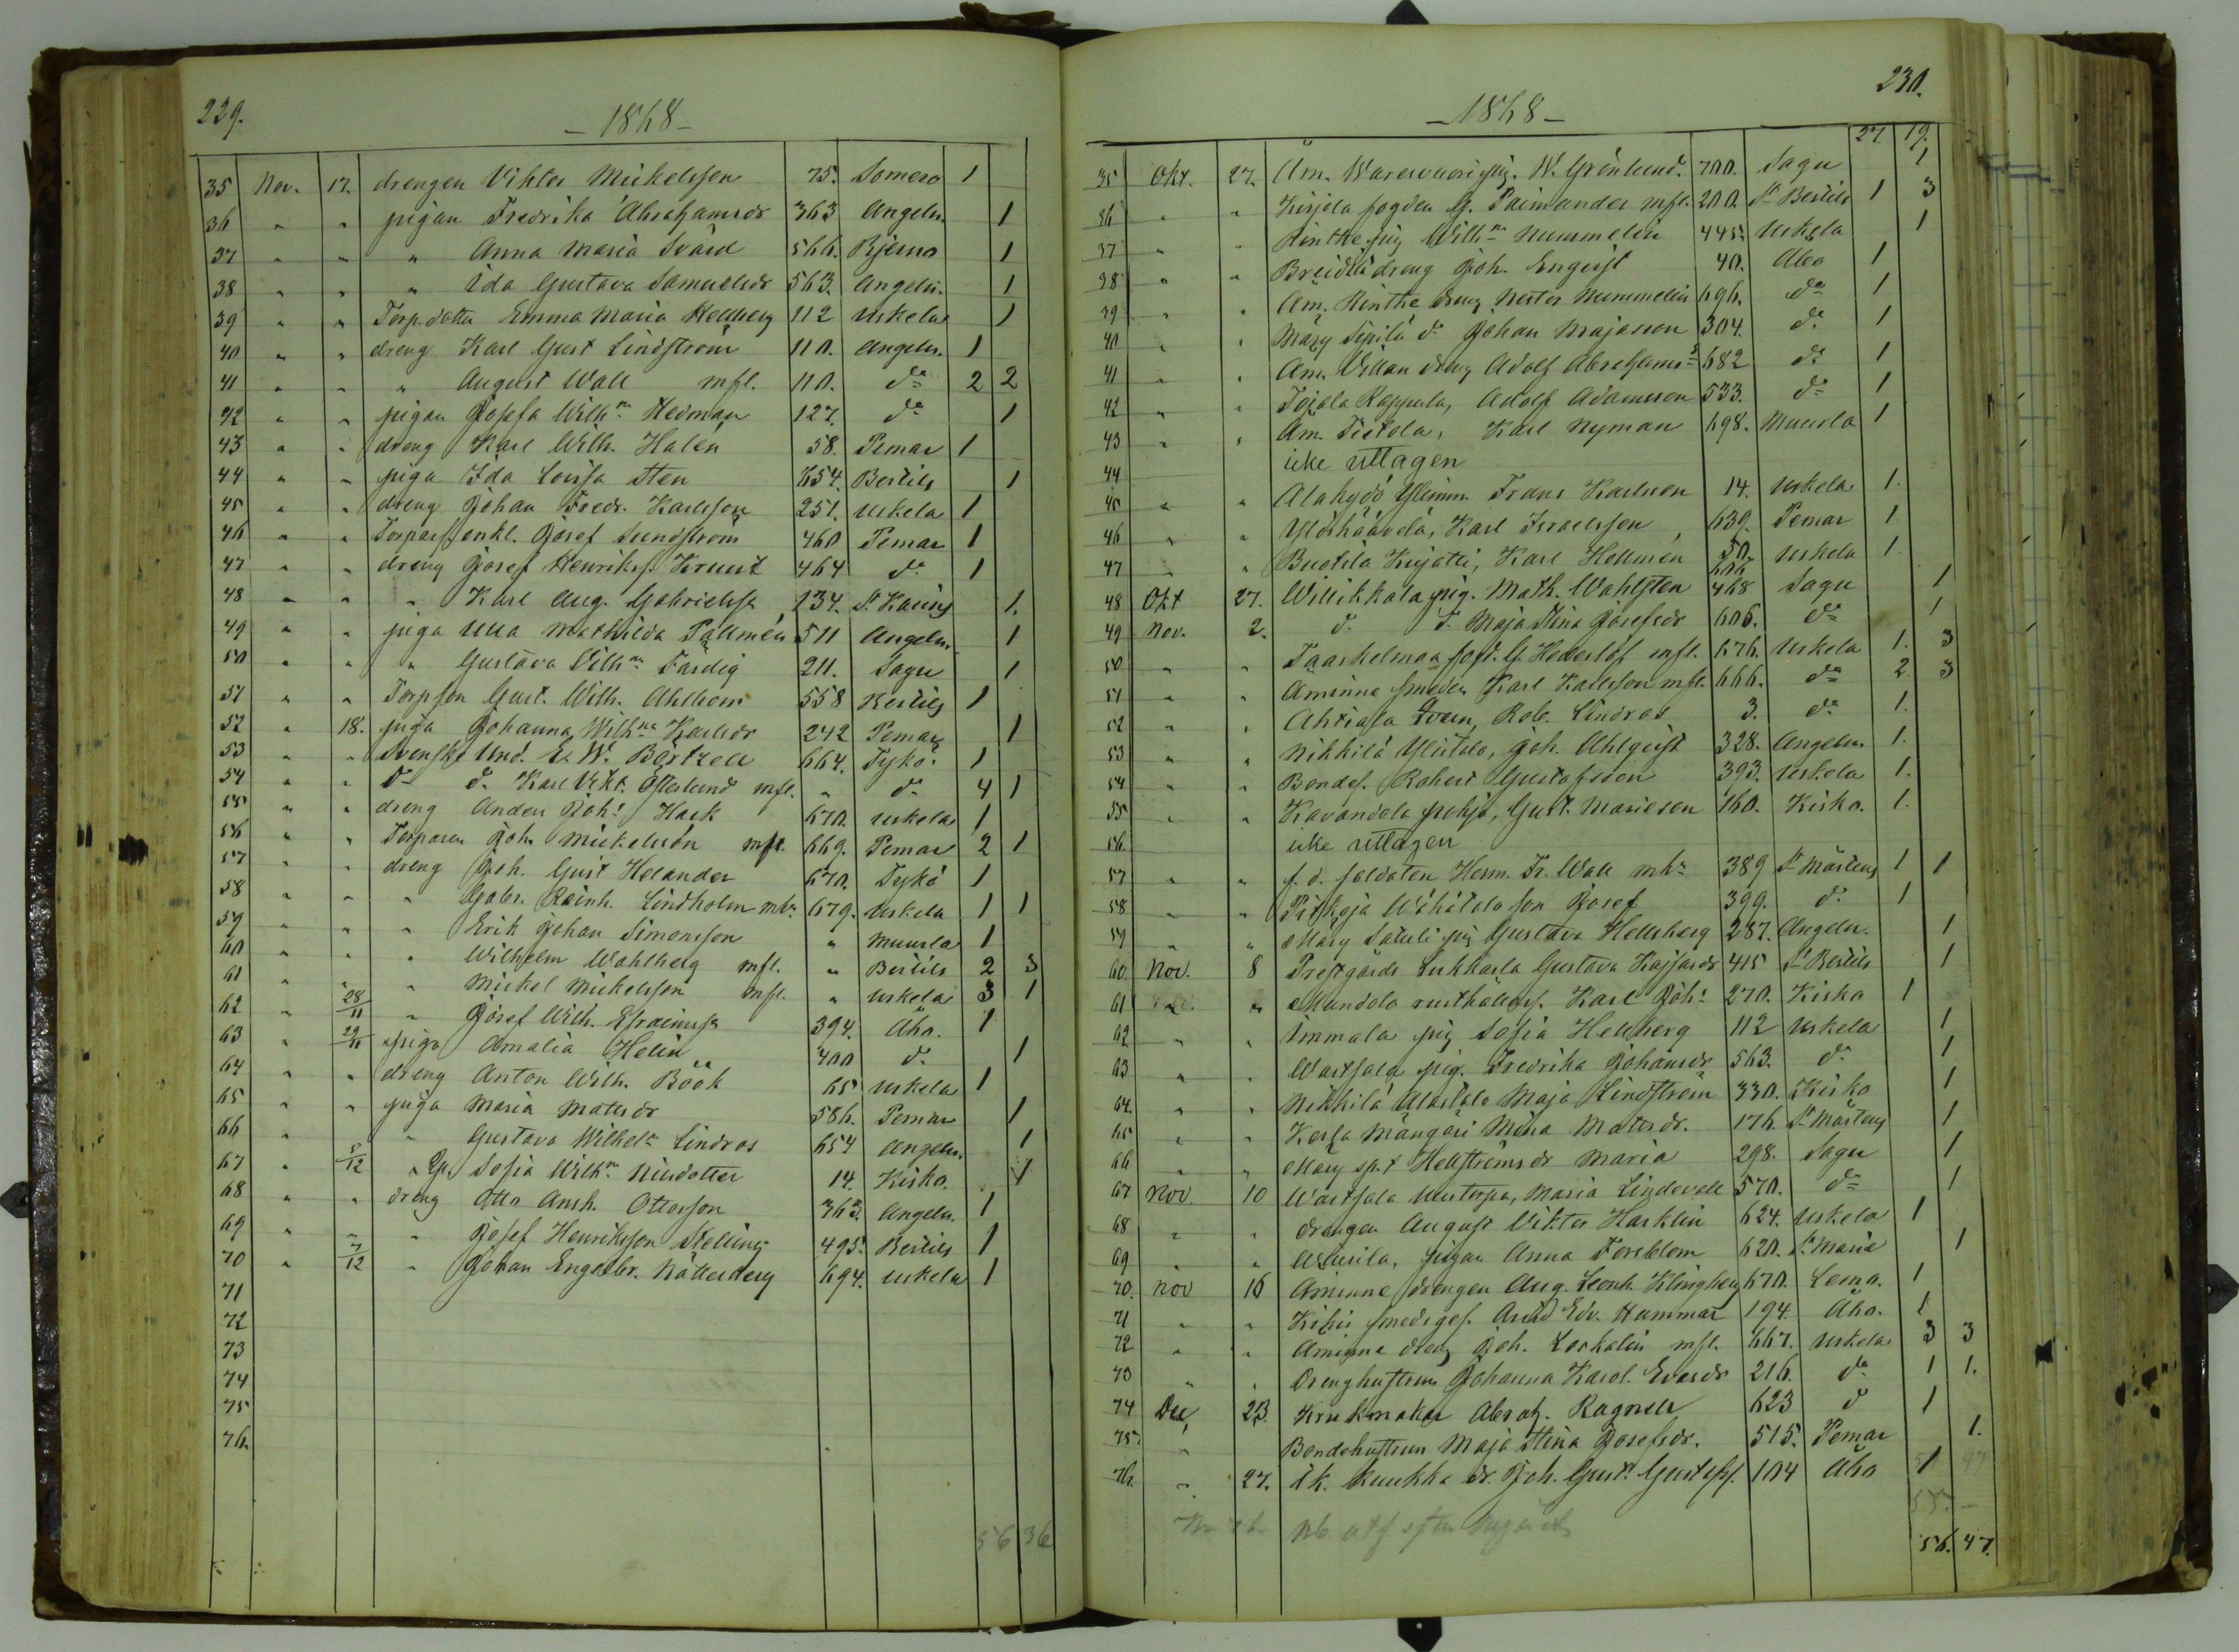 229.
- 1868 -
35 Nov. 17. drengen Viktor Mickelsson 75. Somero 1
36 " " pigan Fredrika Abrahamsdr 363 Angeln. 1
37 " " " Anna Maria Svärd 566. Bjerno 1
38 " " " Ida Gustava Samuelsdr 563. Angeln. 1
39 " " Torp.dotter Emma Maria Hellberg 112 Uskela 1
40 " " dreng Karl Gust Lindström 110. Angeln. 1
41 " " " August Wall mfl. 110. do 2 2
42 " " pigan Josefa Wilhna Hedman 127. do 1
43 " " dreng Karl Wilh. Halen 58. Pemar 1
44 " " piga Ida Lovisa Sten 654. Bertils 1
45 " " dreng Johan Fredr. Karlsson 251. Uskela 1
46 " " Torpare enkl. Josef Sundström 460 Pemar 1
47 " " dreng Josef Henriks. Kruut 464 do 1
48 " " " Karl Aug. Gabrielss 134. St Karins 1.
49 " " piga Ulla Mathilda Pallmén 511 Angeln. 1
50 " " " Gustava Vilhna Färdig 211. Sagu 1
51 " " Torpson Gust. Wilh. Ahlbom 558 Bertils 1
52 " 18. piga Johanna Wilhna Karlsdr 242 Pemar 1
53 " " Svenske Und. E. W. 664. Tyko. 1
54 " " do do Karl Vikt. Österlund mfl. " do 4 1
55 " " dreng Anders Joh. Hark 670. Uskela 1
56 " " Torparen Joh. Mickelsson mfl. 669. Pemar 2 1
57 " " dreng Joh. Gust Helander 670. Tykö 1
58 " " " Gabr. Reinh. Lindholm mh. 679. Uskela 1 1
59 " " " Erik Johan Simonsson " Muurla 1
60 " " " Wilhelm Wahlberg mfl. " Bertils 2 3
61 " " " Mickel Mickelsson mfl. " Uskela 3 1
62 " 28/11 " Josef Wilh. Efraimss 394. Åbo. 1
63 " 29/11 piga Amalia Helin 400 do 1
64 " " dreng Anton Wilh. Böök 65 Uskela 1
65 " " piga Maria Matsdr 586. Pemar 1
66 " " " Gustava Wilhela Lindros 654 Angeln. 1
67 " 5/12 " Sofia Wilhna 14. Kisko. 1
68 " " dreng Otto Amb. Ottosson 363. Angeln. 1
69 " " " Josef Henriksson Skelling 495. Bertils 1
70 " 7/12 " Johan Engelbr. Nötterberg 694. Uskela 1
71
72
73
74
75
76.
56 36
230.
- 1868 -
27 19.
35 Okt. 27. Åm. pig. W. Grönlund. 700. Sagu 1
36 " " Kirjola fogden G. Paimander mfl. 200. St Bertils 1 3
37 " " Rinthe pig Wilhna Nummelin 445. Uskela 1
38 " " dreng Joh. Engvist 40. Åbo 1
39 " " Åm. Rinthe dreng Nestor Nummelin 696. do 1
40 " " Märy Sepilä do Johan Majasson 304. do 1
41 " " Åm. Villan dreng Adolf Abrahams 682 do 1
42 " " Adolf Adamsson 533. do 1
43 " " Åm. Karl Nyman 698. Muurla 1
44 icke uttagen
45 " " Alahyö Frans Karlsson 14. Uskela 1.
46 " " Karl Israelsson 639. Pemar 1
47 " " Karl Hellmén 50. 606 Uskela 1
48 Okt 27. Willikkala pig. Math. Wahlsten 468 Sagu 1
49 Nov. 2. do do Maja Stina Josefsdr 606. do 1
50 " " fogd. G. Hederlöf mfl. 676. Uskela 1. 3
51 " " Åminne smeden Karl Karlsson mfl. 666. do 2 3
52 " " Ahtiala Rob. Lindros 3. do 1.
53 " " Nikkilä Ylitalo, Joh. Ahlqvist 328. Angeln. 1.
54 " " Bondes. Robert Gustafsson 393. Uskela 1.
55 " " pohja, Gust. Mariesson 160. Kisko. 1.
56. icke uttagen
57 " " f. d. soldaten Herm. Fr. Wall mh 389 St Mårtens 1 1
58 " " Wähätalo son Josef 399. do 1
59 " " Märy pig Gustava Hellsberg 287. Angeln. 1
60 Nov. 8 Prestgårds Gustava Kajsasdr 415 St Bertils 1
61 " " Karl Joh. 270. Kisko 1
62 " " Immala pig Sofia Hellberg 112 Uskela 1
63 " " Wartsala pig. Fredrika Johansdr 563. do 1
64. " " Nikkilä Maja Lindström 330. Kisko 1
65 " " Mina Matsdr. 176. St Mårtens 1
66 " " Märy Hellströmsdr Maria 298. Sagu 1
67 Nov. 10 Wartsala Maria Lindevall 570. do 1
68 " " drengen August Viktor Harklin 624. Uskela 1
69 " " pigan Anna Forsblom 620. St Marie 1
70. Nov 16 Åminne drengen Aug. Leonh. Klingberg 670. Lemo. 1
71 " " smedsges. Arvid Edv. Hammar 194. Åbo. 1
72 " " Åminne dreng Joh. mfl. 667. Uskela 3 3
73 " " Drenghustrun Johanna Karol. Evasdr 216. do 1 1.
74 Dec. 23. Krukmakar Abrah. Ragnell 623 do 1
75 " Bondehustrun Maja Stina Josefsdr. 515. Pemar 1.
76. " 27. Ik. Kuukka dr. Joh. Gust. Gustafss. 104 Åbo 1
55 -
56. 47.